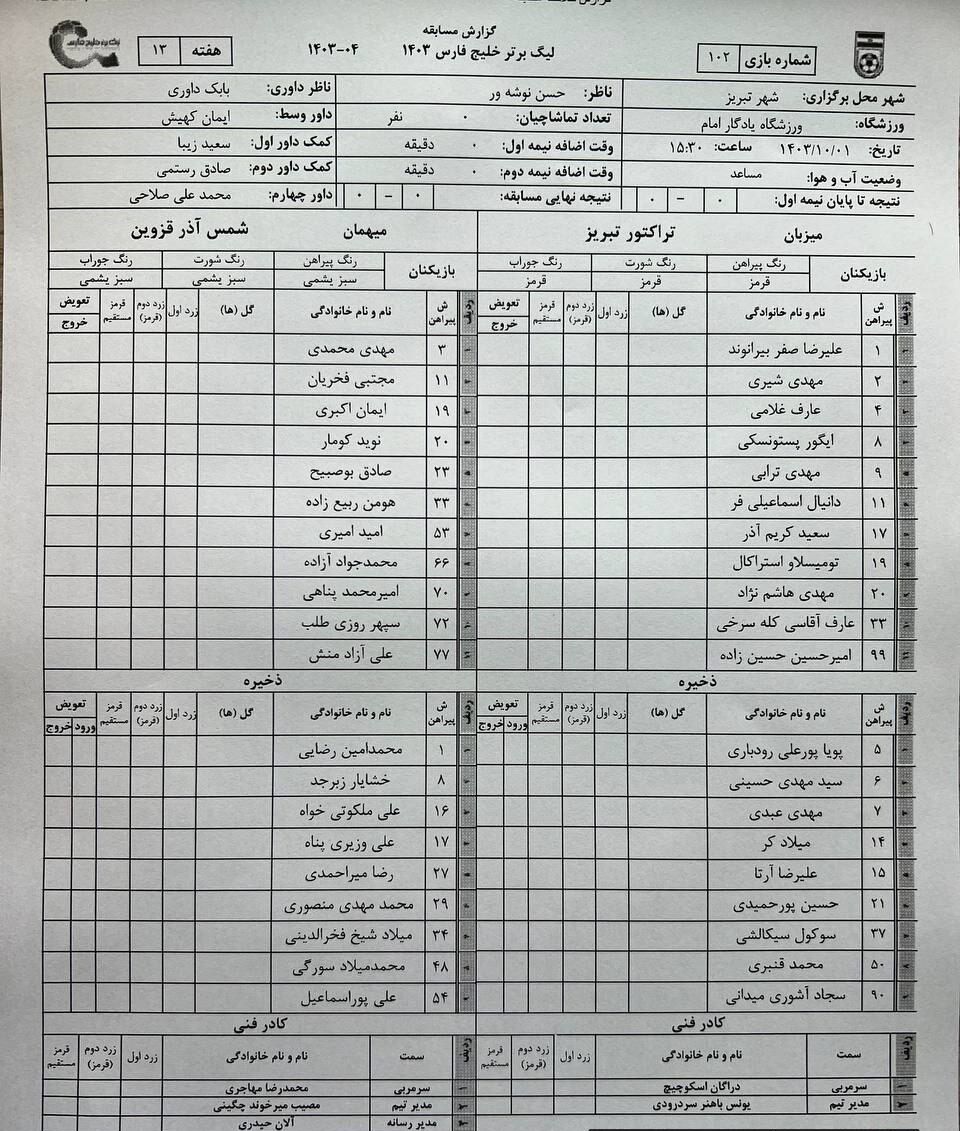 گزارش مسابقه
لیگ برتر خلیج فارس ۱۴۰۳ ۱۴۰۳-۰۴
شماره بازی ۱۰۲
هفته ۱۳
شهر محل برگزاری: شهر تبریز ناظر: حسن نوشه ور ناظر داوری: بابک داوری
ورزشگاه: ورزشگاه یادگار امام تعداد تماشاچیان: ۰ نفر داور وسط: ایمان کهیش
تاریخ: ۱۴۰۳/۱۰/۰۱ ساعت: ۱۵:۳۰ وقت اضافه نیمه اول: ۰ دقیقه کمک داور اول: سعید زیبا
وضعیت آب و هوا: مساعد وقت اضافه نیمه دوم: ۰ دقیقه کمک داور دوم: صادق رستمی
نتیجه تا پایان نیمه اول: ۰ – ۰ نتیجه نهایی مسابقه: ۰ – ۰ داور چهارم: محمد علی صلاحی
میزبان تراکتور تبریز میهمان شمس آذر قزوین
بازیکنان رنگ پیراهن رنگ شورت رنگ جوراب بازیکنان رنگ پیراهن رنگ شورت رنگ جوراب
قرمز قرمز قرمز سبز یشمی سبز یشمی سبز یشمی
ردیف ش پیراهن نام و نام خانوادگی گل (ها) زرد اول زرد دوم (قرمز) قرمز مستقیم تعویض خروج ردیف ش پیراهن نام و نام خانوادگی گل (ها) زرد اول زرد دوم (قرمز) قرمز مستقیم تعویض خروج
۱ علیرضا صفر بیرانوند ۳ مهدی محمدی
۲ مهدی شیری ۱۱ مجتبی فخریان
۴ عارف غلامی ۱۹ ایمان اکبری
۸ ایگور پستونسکی ۲۰ نوید کومار
۹ مهدی ترابی ۲۳ صادق بوصبیح
۱۱ دانیال اسماعیلی فر ۳۳ هومن ربیع زاده
۱۷ سعید کریم آذر ۵۳ امید امیری
۱۹ تومیسلاو استراکال ۶۶ محمدجواد آزاده
۲۰ مهدی هاشم نژاد ۷۰ امیرمحمد پناهی
۳۳ عارف آقاسی کله سرخی ۷۲ سپهر روزی طلب
۹۹ امیرحسین حسین زاده ۷۷ علی آزاد منش
ذخیره ذخیره
ردیف ش پیراهن نام و نام خانوادگی گل (ها) زرد اول زرد دوم (قرمز) قرمز مستقیم تعویض ورود خروج ردیف ش پیراهن نام و نام خانوادگی گل (ها) زرد اول زرد دوم (قرمز) قرمز مستقیم تعویض ورود خروج
۵ پویا پورعلی رودباری ۱ محمدامین رضایی
۶ سید مهدی حسینی ۸ خشایار زبرجد
۷ مهدی عبدی ۱۶ علی ملکوتی خواه
۱۴ میلاد کر ۱۷ علی وزیری پناه
۱۵ علیرضا آرتا ۲۷ رضا میراحمدی
۲۱ حسین پورحمیدی ۲۹ محمد مهدی منصوری
۳۷ سوکول سیکالشی ۳۴ میلاد شیخ فخرالدینی
۵۰ محمد قنبری ۴۸ محمدمیلاد سورگی
۹۰ سجاد آشوری میدانی ۵۴ علی پوراسماعیل
کادر فنی کادر فنی
ردیف سمت نام و نام خانوادگی زرد اول زرد دوم (قرمز) قرمز مستقیم ردیف سمت نام و نام خانوادگی زرد اول زرد دوم (قرمز) قرمز مستقیم
۱ سرمربی دراگان اسکوچیچ ۱ سرمربی محمدرضا مهاجری
۲ مدیر تیم یونس باهنر سردرودی ۲ مدیر تیم مصیب میرخوند چگینی
۳ مدیر رسانه آلان حیدری